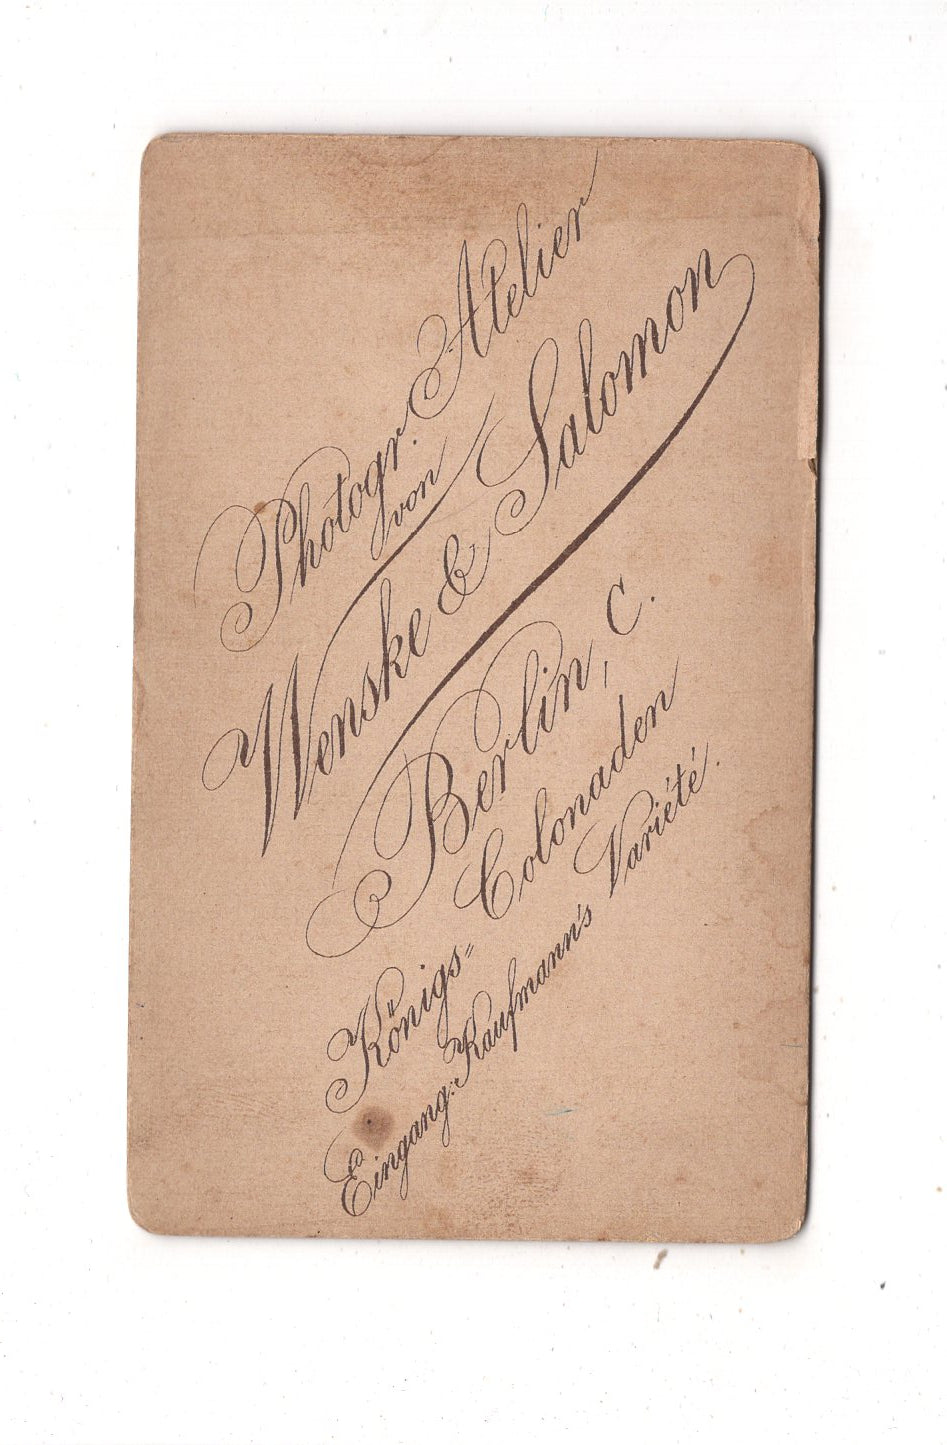 Photogr. Atelier
von
Wenske & Salomon
Berlin, C.
Königs=Colonaden
Eingang: Kaufmann's Variété.